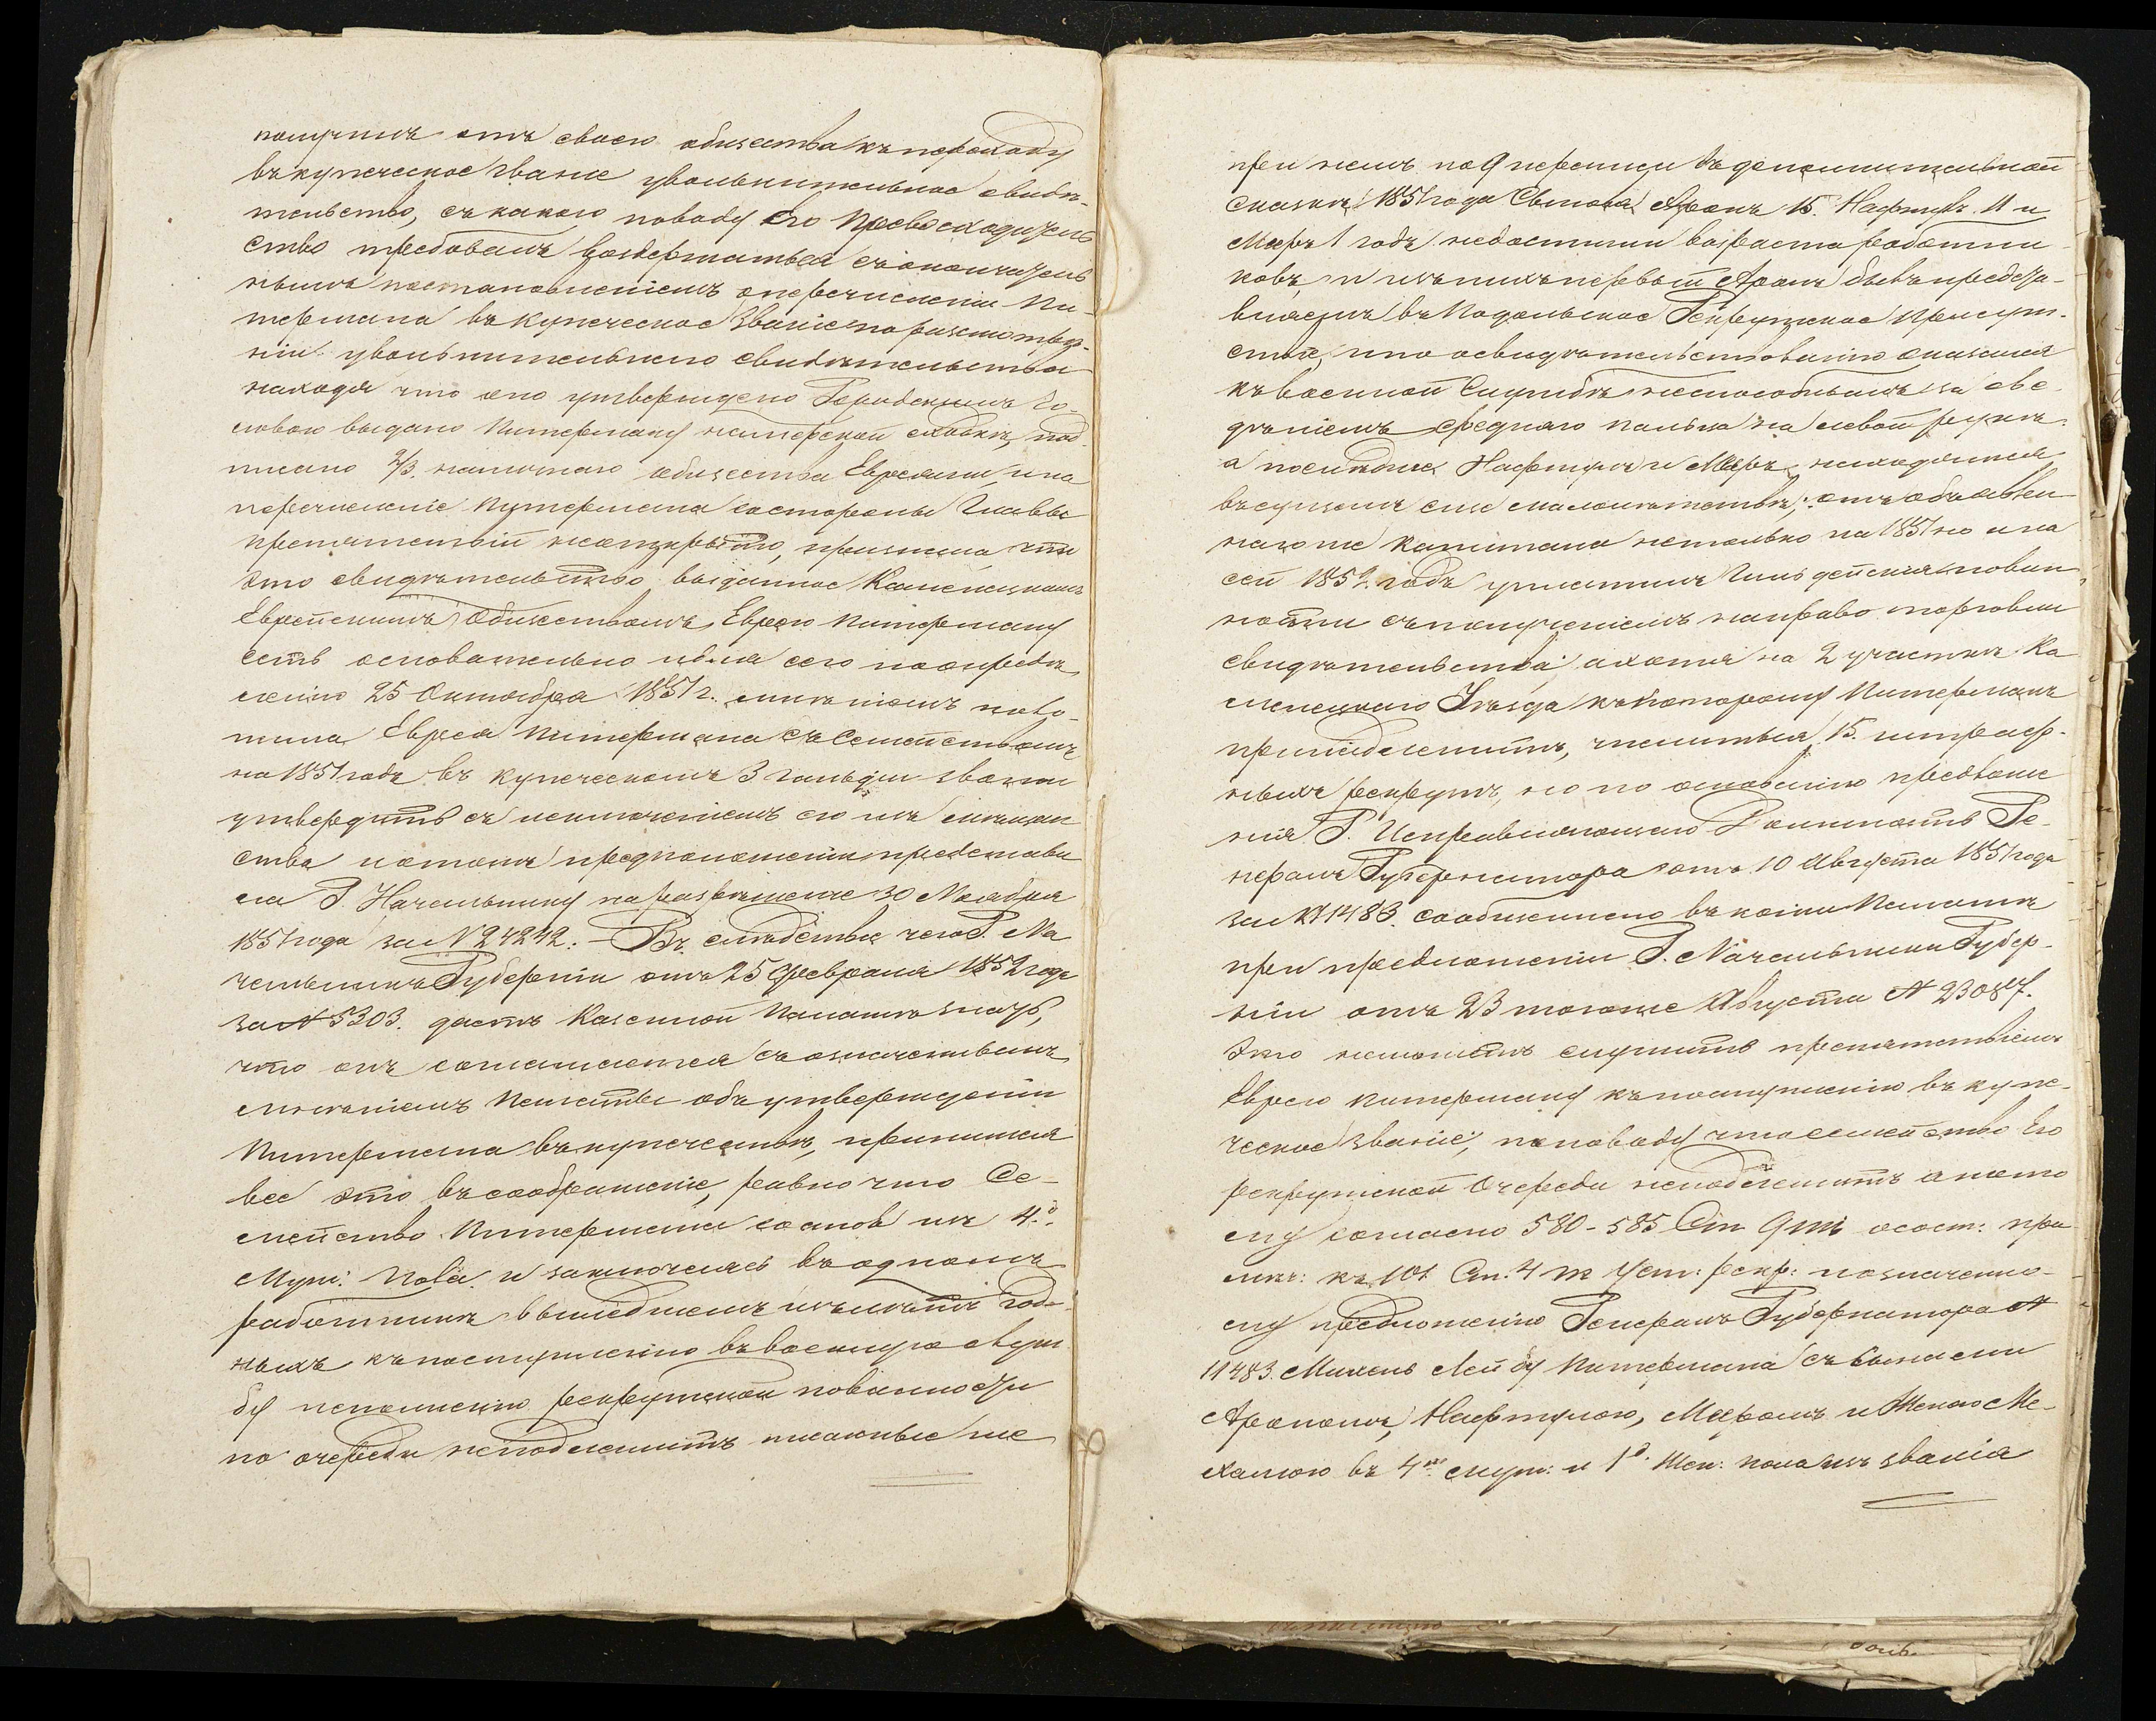 получилъ отъ своего общества къ переходу
въ купеческое званіе увольнительное свидѣ-
тельство, съ какого поводу Его Превосходитель
ство требовалъ воздержаться съ окончатель
нымъ постановленіемъ о перечисленіи Пи-
термана въ купеческое званіе по разсмотрѣ-
ніи увольнительнаго свидѣтельства
находя что оно утверждено Городскимъ Го-
ловою выдано Питерману на мірской сходкѣ, под-
писано 2/3. наличнаго общества Евреями, и на
перечисленіе Питермана со стороны Главы
препятствій не открыто, признала что
это свидѣтельство выданное Каменецкимъ
Еврейскимъ Обществомъ, Еврею Питерману
есть основательно и для сего по опредѣ
ленію 25 Октября 1851 г. мнѣніемъ поло-
жила Еврея Питермана съ Семействомъ
на 1851 годъ въ купеческомъ 3 гильдіи званіи
утвердить съ исключеніемъ его изъ мѣщан
ства и о томъ предположеніи представи
ла Г. Начальнику на разрѣшеніе 30 Ноября
1851 года за N 24242. – Въ слѣдствіе чего Г. На
чальникъ Губерніи отъ 25 Февраля 1852 года
за N 5303. даетъ Казенной Палатѣ знать,
что онъ соглашается съ означеннымъ
мнѣніемъ Палаты объ утвержденіи
Питермана въ купечествѣ, принимая
все это въ соображеніе, равно что Се-
мейство Питермана состоя изъ 4.хъ
Муж: Пола и заключаясь въ одномъ
работникѣ вышедшемъ изъ лѣтъ год-
ныхъ къ поступленію въ военную служ
бу исполненію рекрутской повинности
по очереди не подлежитъ писанные же
при немъ по 9 переписи въ дополнительной
Сказкѣ 1851 года Сыновья Аронъ 15. Нафтула 11 и
Меер 1 годъ недостигли возраста работни
ковъ, и изъ нихъ первый Аронъ бывъ предста-
вляемъ въ Подольское Рекрутское Присут-
ствіе, и по освидѣтельствованію оказался
къ военной Службѣ неспособнымъ за све
деніемъ средняго пальца на левой рукѣ,
а последніе Нафтула и Меер находятся
въ сущемъ еще малолѣтствѣ; отъ объявлен
наго же Капитала не только на 1851 но и на
сей 1852. годъ уплатилъ Гильдейскія повин
ности съ полученіемъ на право торговли
свидѣтельства; а хотя на 2 участкѣ Ка
менецкаго Уѣзда къ которому Питерманъ
принадлежитъ, числится 15. штраф-
ныхъ рекрутъ, но по основанію предложе
нія Г. Исправляющаго Должность Ге-
нералъ Губернатора отъ 10 Августа 1851 года
за N 11483. сообщеннаго въ копіи Палатѣ
при предложеніи Г. Начальника Губер-
ніи отъ 23 того же Августа N 23087.
Это неможетъ служить препятствіемъ
Еврею Питерману къ поступленію въ купе-
ческое званіе, по поводу что семейство Его
рекрутской Очереди неподлежитъ а пото
му согласно 580-585 Ст 9 т о сост: при
мѣч: къ 101 Ст. 4 т Уст: рекр: и означенно-
му предложенію Генералъ Губернатора N
11483. Михель Лейбу Питермана съ сыновьями
Арономъ, Нафтулою, Меером и Женою Ме-
халиою въ 4мъ муж: и 1й. Жен: пола изъ званія